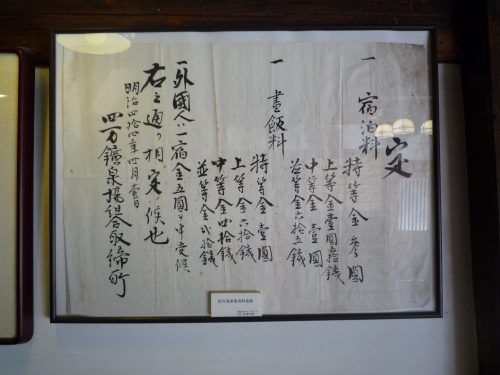 定
一 宿泊料
特等金参圓
上等金壹圓五拾錢
中等金壹圓
並等金六拾五錢
一 晝飯料
特等金壹圓
上等金六拾錢
中等金四拾錢
並等金弐拾錢
一 外國人ハ一宿金五圓ヲ申受候
右之通リ相定候也
明治四拾四年四月壹日
四万鑛泉場組合取締所